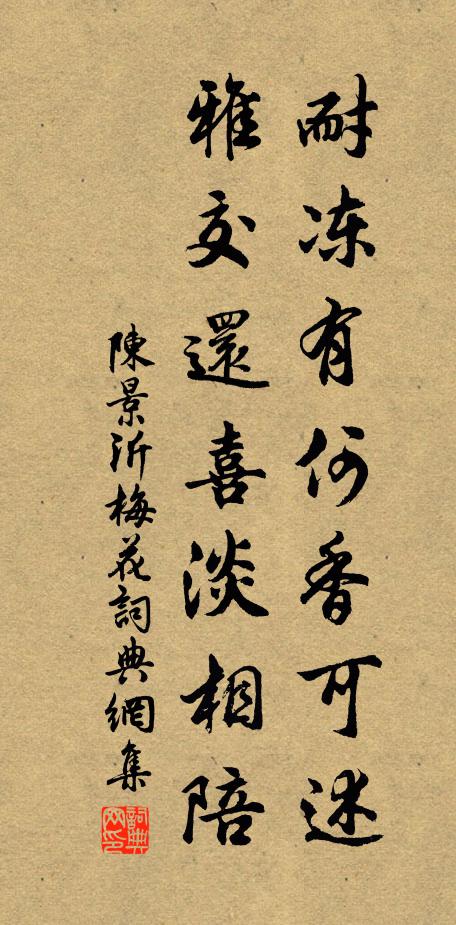 耐冻有何香可述
雅交還喜淡相陪
陳景沂梅花詞典網集
詞典網印